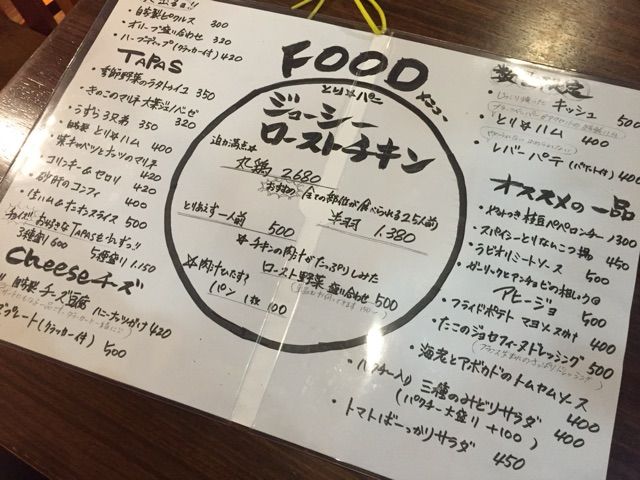 ・自家製ピクルス 300
・オリーブ盛り合わせ 320
・ハーブディップ(クラッカー付) 420
TAPAS
・季節野菜のラタトゥイユ 350
・きのこのマリネ 320
・うずら3兄弟 350
・自家製 とりハム 400
・紫キャベツとナッツのマリネ 400
・コリンキー&セロリ 420
・砂肝のコンフィ 400
・生ハム&オニオンスライス 500
お好きなTAPASを
3種盛り 600 5種盛り 1.150
Cheese チーズ
自家製 チーズ豆腐 ハニーナッツがけ 420
プレート(クラッカー付) 500
FOOD
メニュー
ジューシー
ローストチキン
迫力満点☆
丸鶏 2.680
全ての部位が食べられる2.5人前
とりあえず一人前 500
半羽 1.380
☆チキンの肉汁がたっぷりしみた
ロースト野菜 盛り合わせ 500
☆肉汁ひたす?
パン 1枚 100
キッシュ 500
・とりハム 400
・レバーパテ(バケット付) 400
オススメの一品
・やみつき枝豆ペペロンチーノ 300
・スパイシーとりなんこつ揚 450
・ラビオリミートソース 500
・ガーリックとアンチョビの
アヒージョ 500
・フライドポテト マヨソースがけ 400
・たこのジョセフィーヌドレッシング 500
・海老とアボカドのトムヤムソース 400
・パクチー入り 三種のみどりサラダ 400
(パクチー大盛り +100)
・トマトばーっかりサラダ 450